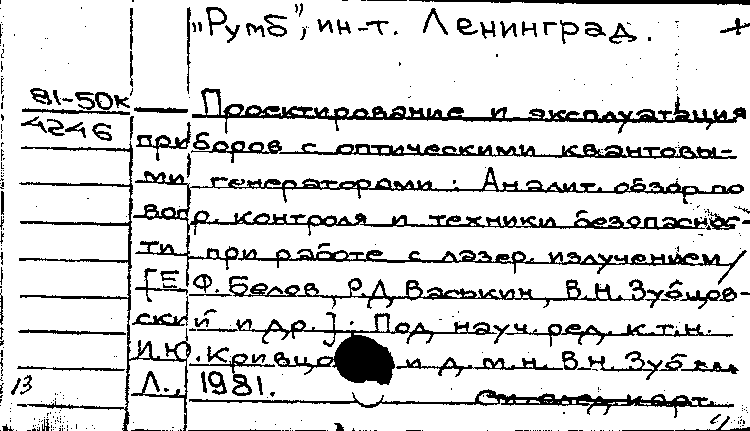 „Румб”, ин-т. Ленинград. +
81-50к Проектирование и эксплуатация
4246 приборов с оптическими квантовы-
ми генераторами: Аналит. обзор по
вопр. контроля и техники безопаснос-
ти при работе с лазер. излучением/
[Е.Ф. Белов, Р.Д. Васькин, В.Н. Зубцов-
ский и др.]; Под науч. ред. к.т.н.
И.Ю. Кривцо и д.м.н. В.Н.
13 Л., 1981.
См. след. карт.